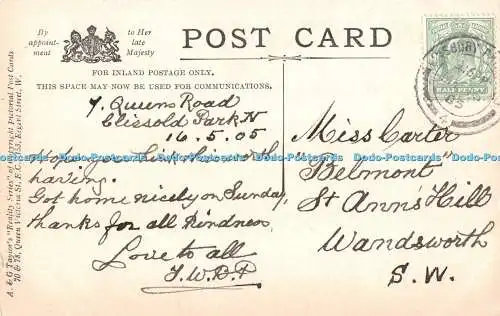 By appoint-ment
to Her late Majesty
POST CARD
FOR INLAND POSTAGE ONLY.
THIS SPACE MAY NOW BE USED FOR COMMUNICATIONS.
A. & G. Taylor's "Reality Series" of Copyright Pictorial Post Cards
70 & 78, Queen Victoria St. E.C.
HALF PENNY
05
7. Queens Road
Clissold Park N
16.5.05
Hope you think this worth
having.
Got home nicely on Sunday,
thanks for all kindness
Love to all
Miss Carter
"Belmont"
St Ann's Hill
Wandsworth
S.W.
Dodo-Postcards Dodo-Postcards Dodo-Postcards Dodo-Postcards Dodo-Postcards Dodo-Postcards